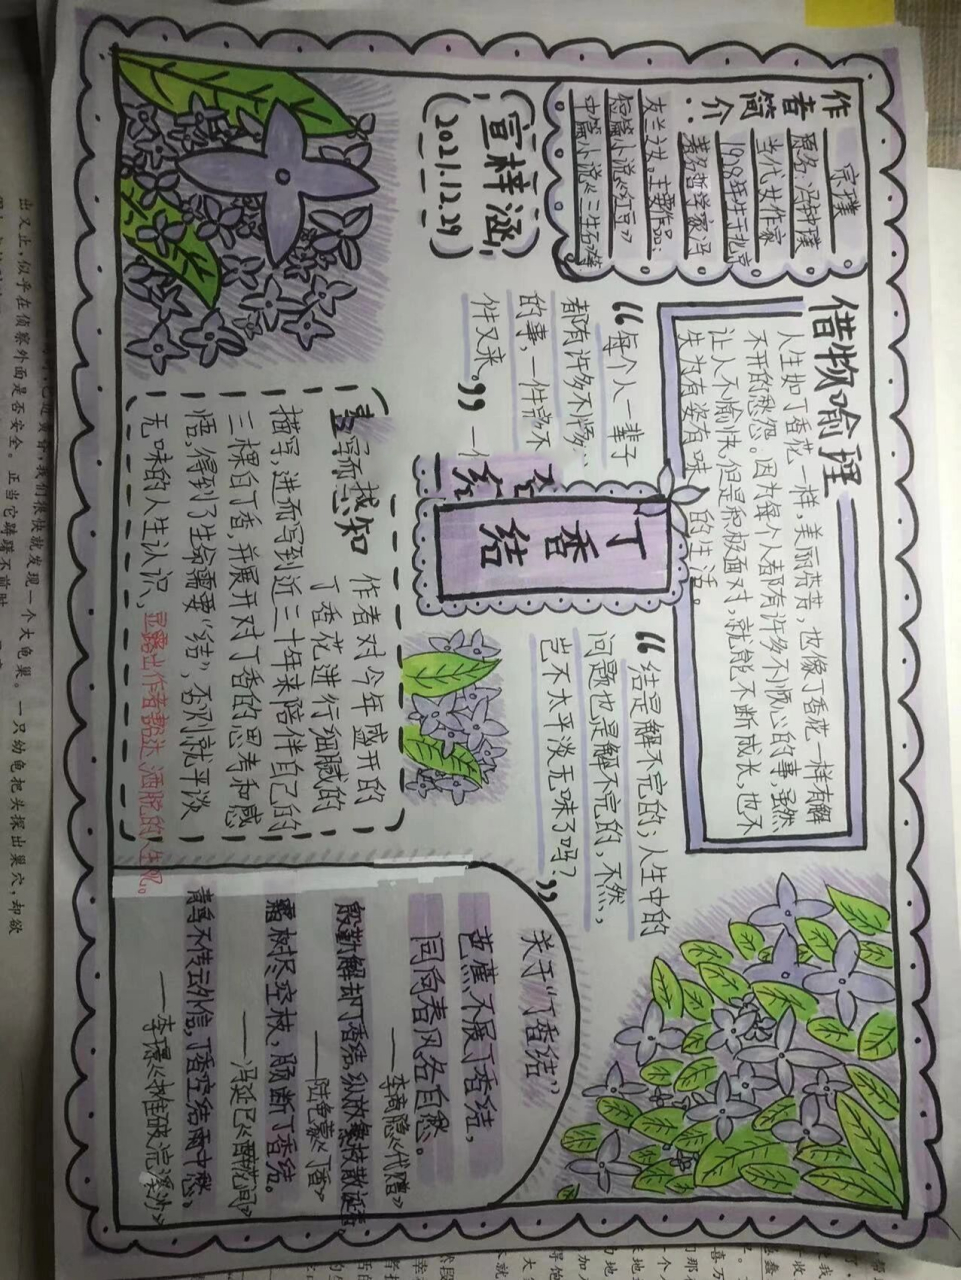 作者简介：
宗璞
原名：冯钟璞
当代女作家
1928年生于北京
著名哲学家冯
友兰之女。主要作品：
短篇小说《红豆》
中篇小说《三生石》等
宣梓涵
2021.12.29
借物喻理
人生如丁香花一样，美丽芬芳，也像丁香花一样有解
不开的愁怨。因为每个人都有许多不顺心的事，虽然
让人不愉快，但是积极面对，就能不断成长，也不
失为有姿有味的生活。
“每个人一辈子
都有许多不顺心
的事，一件完不
件又来。” 一个
丁香结
“结是解不完的；人生中的
问题也是解不完的，不然，
岂不太平淡无味了吗？”
写而感知
作者对今年盛开的
丁香花进行细腻的
描写，进而写到近三十年来陪伴自己的
三棵白丁香，并展开对丁香的思考和感
悟，得到了生命需要“结”，否则就平淡
无味的人生认识，显露出作者豁达、洒脱的人生观。
关于“丁香结”
芭蕉不展丁香结，
同向春风各自愁。
——李商隐《代赠》
殷勤解却丁香结，纵放繁枝散诞
——陆龟蒙《丁香》
霜树尽空枝，肠断丁香结。
——冯延巳《醉花间》
青鸟不传云外信，丁香空结雨中愁
——李璟《摊破浣溪沙》
我们很快就发现一个大龟巢。一只幼龟把头探出巢穴，却欲
出又止，似乎在侦察外面是否安全。正当它踌躇不前时